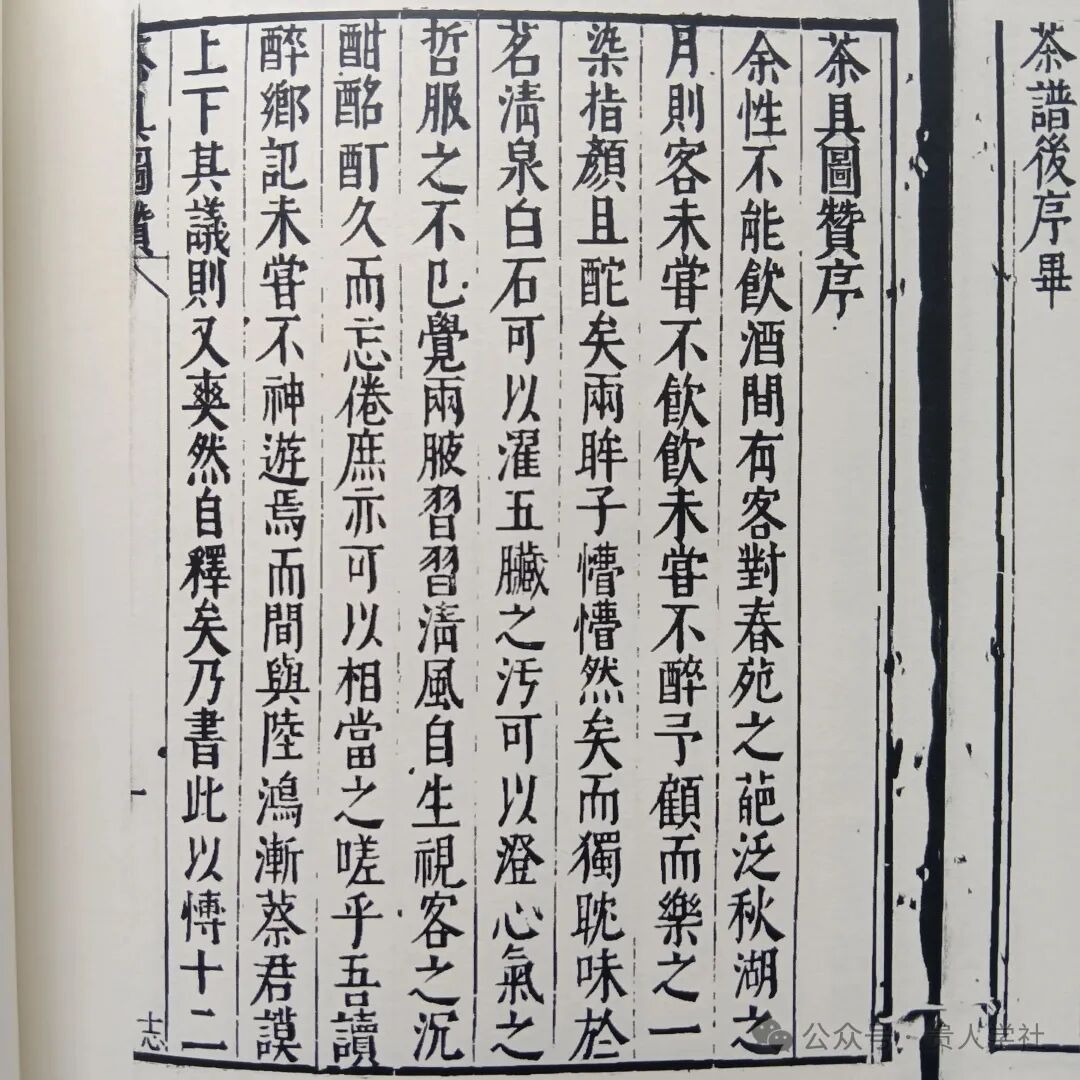 茶譜後序畢
茶具圖贊序
余性不能飲酒間有客對春苑之葩泛秋湖之
月則客未嘗不飲飲未嘗不醉予顧而樂之一
染指顏且酡矣兩眸子懵懵然矣而獨耽味於
茗清泉白石可以濯五臟之污可以澄心氣之
哲服之不已覺兩腋習習清風自生視客之沉
酣酩酊久而忘倦庶亦可以相當之嗟乎吾讀
醉鄉記未嘗不神遊焉而間與陸鴻漸蔡君謨
上下其議則又爽然自釋矣乃書此以博十二
茶具圖贊
公众号·贵人学社